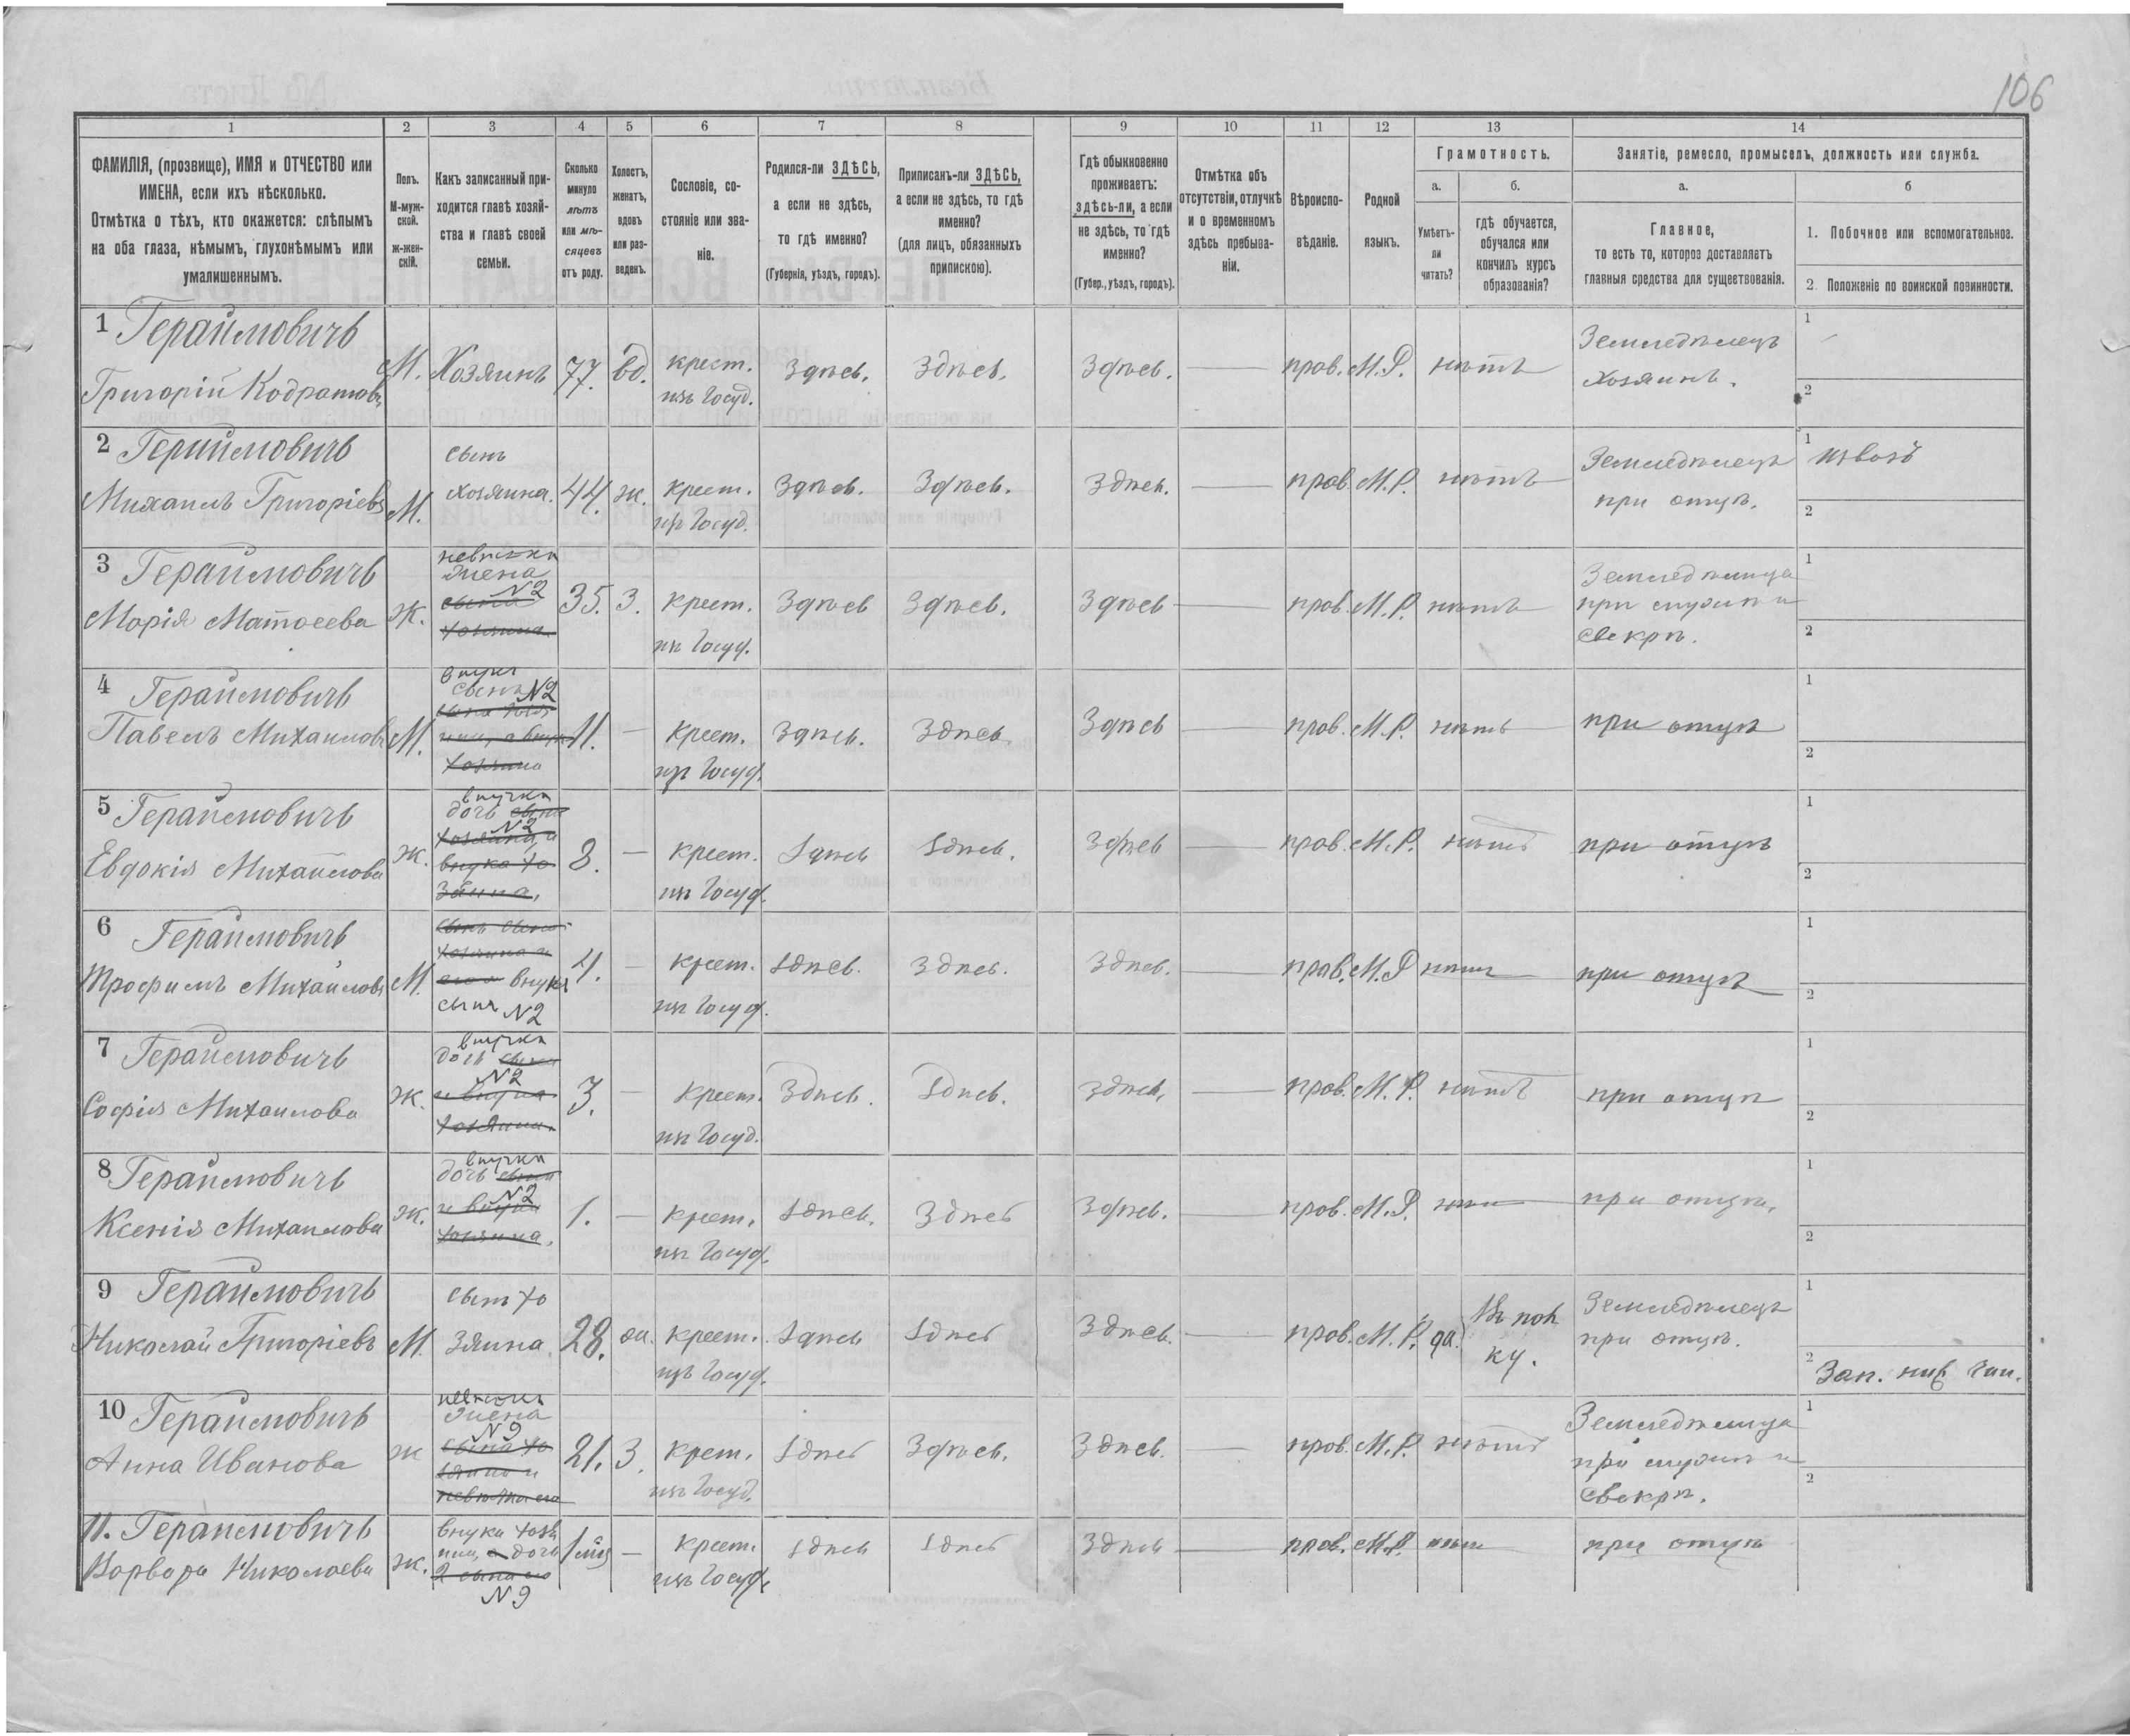 106
1 2 3 4 5 6 7 8 9 10 11 12 13 14
ФАМИЛІЯ, (прозвище), ИМЯ и ОТЧЕСТВО или
ИМЕНА, если ихъ нѣсколько.
Отмѣтка о тѣхъ, кто окажется: слѣпымъ
на оба глаза, нѣмымъ, глухонѣмымъ или
умалишеннымъ.
Полъ.
М-муж-
ской.
ж-жен-
скій.
Какъ записанный при-
ходится главѣ хозяй-
ства и главѣ своей
семьи.
Сколько
минуло
лѣтъ
или мѣ-
сяцевъ
отъ роду.
Холостъ,
женатъ,
вдовъ
или раз-
веденъ.
Сословіе, со-
стояніе или зва-
ніе.
Родился-ли ЗДѢСЬ,
а если не здѣсь,
то гдѣ именно?
(Губернія, уѣздъ, городъ).
Приписанъ-ли ЗДѢСЬ,
а если не здѣсь, то гдѣ
именно?
(для лицъ, обязанныхъ
припискою).
Гдѣ обыкновенно
проживаетъ:
здѣсь-ли, а если
не здѣсь, то гдѣ
именно?
(Губер., уѣздъ, городъ).
Отмѣтка объ
отсутствіи, отлучкѣ
и о временномъ
здѣсь пребыва-
ніи.
Вѣроиспо-
вѣданіе.
Родной
языкъ.
Грамотность.
а.
Умѣетъ-
ли
читать?
б.
гдѣ обучается,
обучался или
кончилъ курсъ
образованія?
Занятіе, ремесло, промыселъ, должность или служба.
а.
Главное,
то есть то, которое доставляетъ
главныя средства для существованія.
б
1. Побочное или вспомогательное.
2. Положеніе по воинской повинности.
1 Гераймовичъ
Григорій Кодратовъ М. Хозяинъ 77. вд. крест. Здѣсь. Здѣсь. Здѣсь. — прав. М.Р. нѣтъ
изъ Госуд.
Земледѣлецъ
хозяинъ.
1
2
2 Гераймовичъ
Михаилъ Григоріевъ М.
сынъ
хозяина. 44. ж. крест. Здѣсь. Здѣсь. Здѣсь. — прав. М.Р. нѣтъ
изъ Госуд.
Земледѣлецъ
при отцѣ.
1 извозъ
2
3 Гераймовичъ
Марія Матвеева Ж.
невѣстка
жена
сына N2
хозяина
35. З. крест. Здѣсь Здѣсь. Здѣсь — прав. М.Р. нѣтъ
изъ Госуд.
Земледѣлица
при мужѣ и
свекрѣ.
1
2
4 Гераймовичъ
Павелъ Михаиловъ М.
внукъ
сынъ N2
хозяина
11. — крест. Здѣсь. Здѣсь. Здѣсь — прав. М.Р. нѣтъ при отцѣ
изъ Госуд.
1
2
5 Гераймовичъ
Евдокія Михаилова Ж.
внучка
дочь сына
N2
хозяина, и
внука хо
зяина,
8. — крест. Здѣсь Здѣсь. Здѣсь — прав. М.Р. нѣтъ при отцѣ
изъ Госуд.
1
2
6 Гераймовичъ
Трофимъ Михаиловъ М.
сынъ сына
хозяина и
внукъ
сынъ N2
4. — крест. Здѣсь. Здѣсь. Здѣсь. — прав. М.Р нѣтъ при отцѣ
изъ Госуд.
1
2
7 Гераймовичъ
Софія Михаилова Ж.
внучка
дочь сына
N2
и внука
хозяина
3. — крест. Здѣсь. Здѣсь. Здѣсь. — прав. М.Р. нѣтъ при отцѣ
изъ Госуд.
1
2
8 Гераймовичъ
Ксенія Михаилова Ж.
внучка
дочь сына
N2
и внука
хозяина.
1. — крест. Здѣсь. Здѣсь Здѣсь. — прав. М.Р. нѣтъ при отцѣ.
изъ Госуд.
1
2
9 Гераймовичъ
Николай Григоріевъ М.
сынъ хо
зяина. 28. ж. крест. Здѣсь Здѣсь Здѣсь. — прав. М.Р. да.
изъ Госуд.
Земледѣлецъ
при отцѣ.
1
2 Зап. ниж. чин.
10 Гераймовичъ
Анна Иванова Ж
невѣстка
жена
N9
сына хо
зяина и
невѣстка его
21. З. крест. Здѣсь Здѣсь. Здѣсь. — прав. М.Р. нѣтъ
изъ Госуд.
Земледѣлица
при мужѣ и
свекрѣ.
1
2
11. Гераймовичъ
Варвара Николаева Ж.
внука хозя
ина, а дочь
2 сына его
N9
1 мѣс — крест. Здѣсь Здѣсь Здѣсь — прав. М.Р. нѣтъ при отцѣ
изъ Госуд.